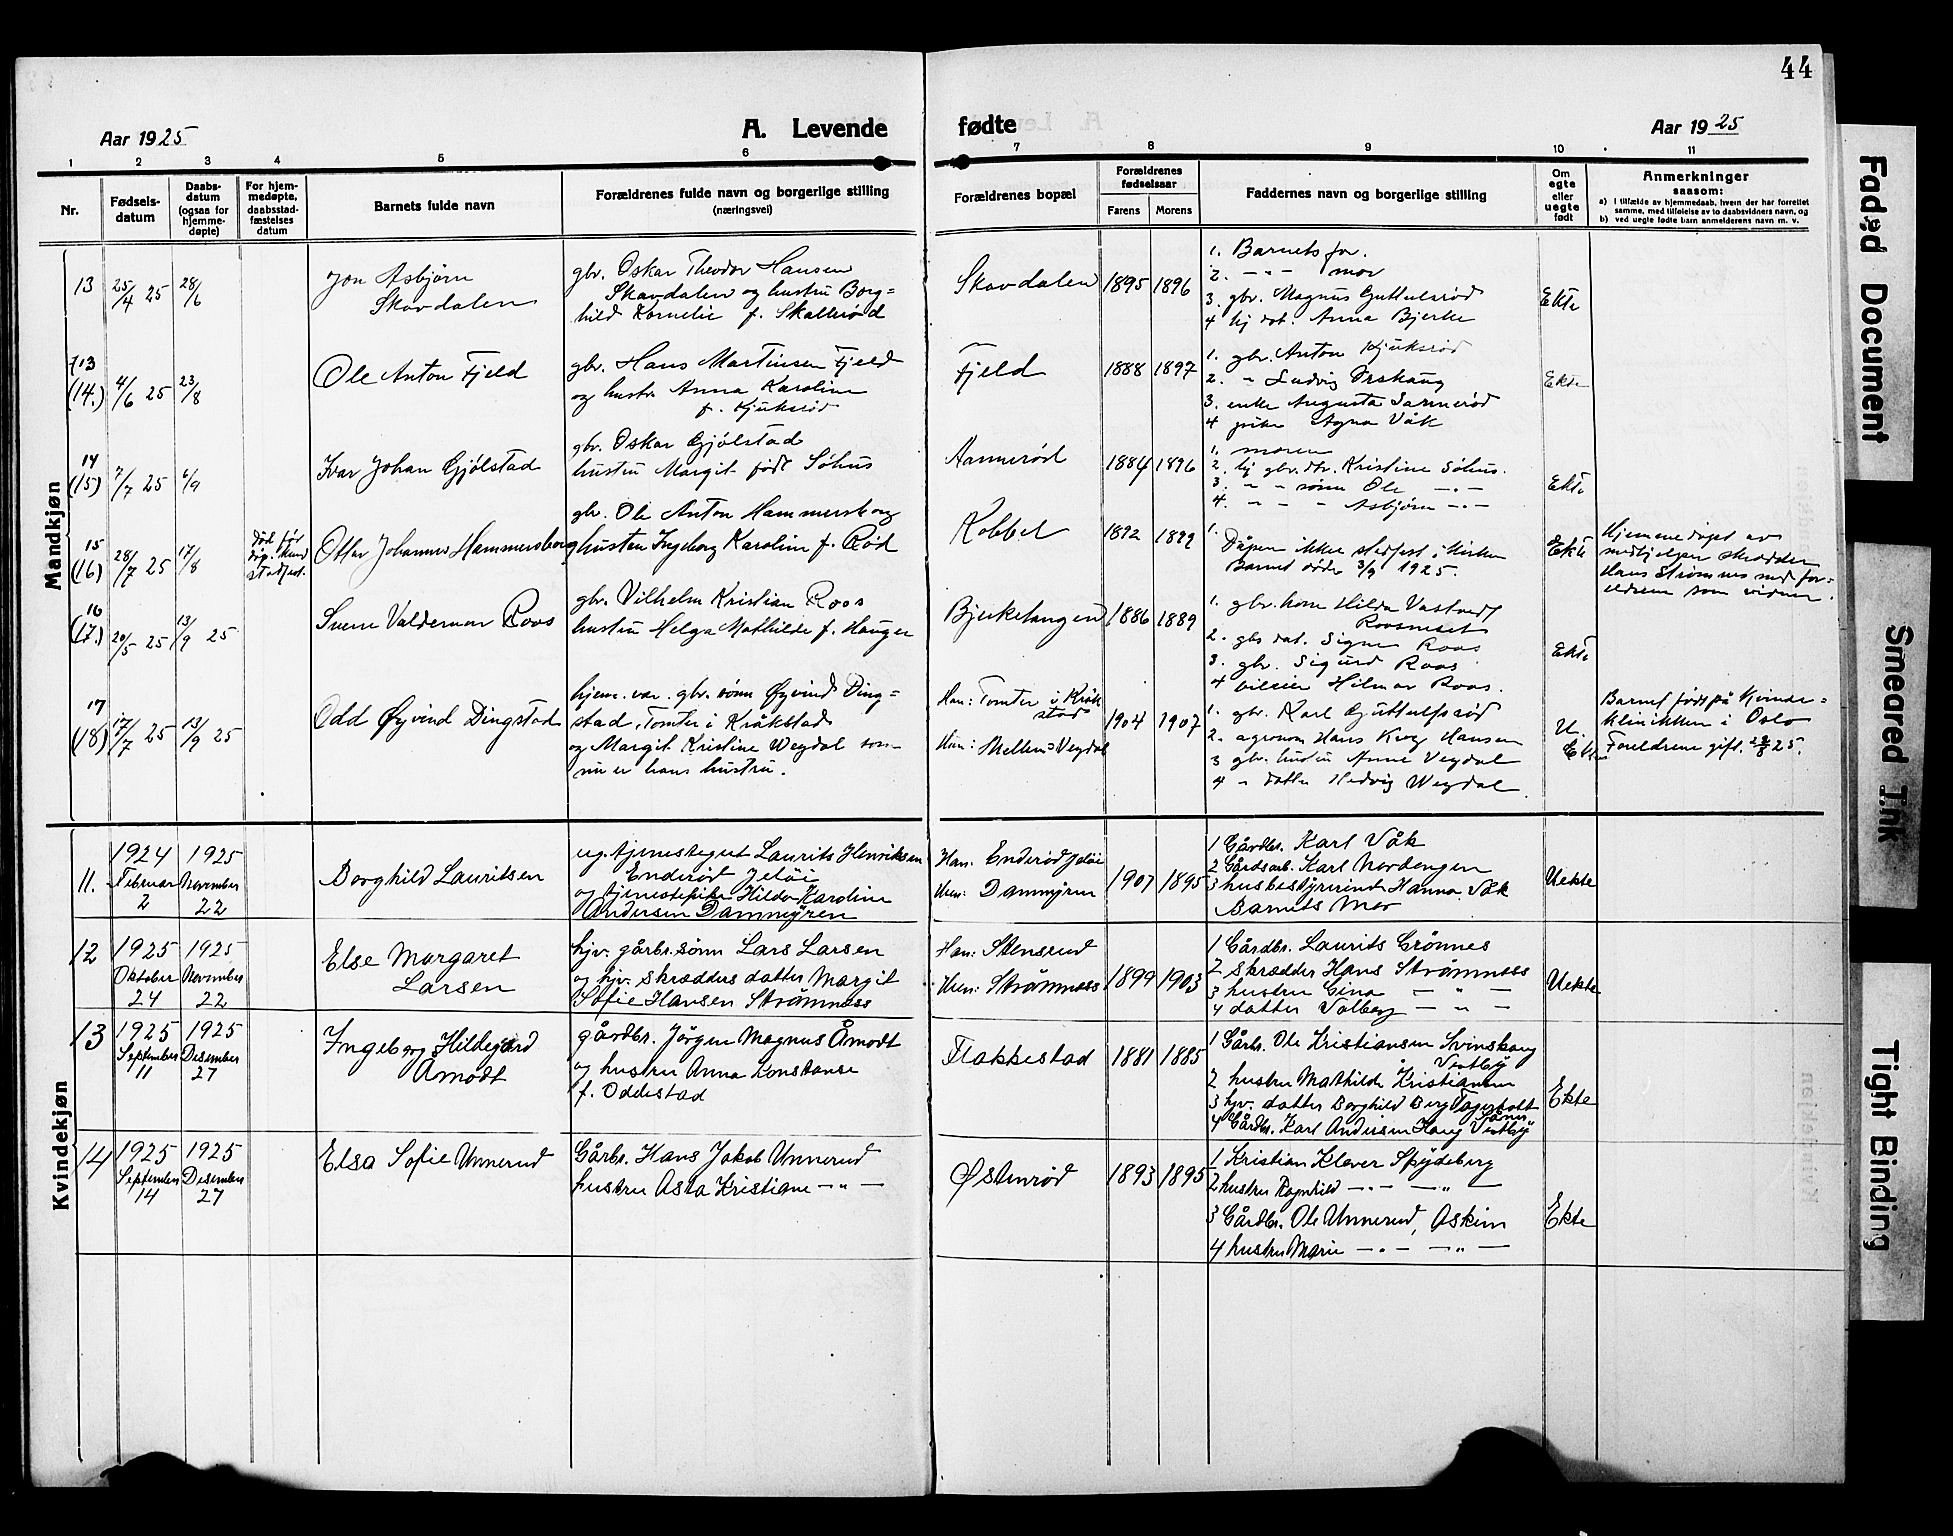 44
Aar 1925
A. Levende fødte
Aar 1925
1 2 3 4 5 6 7 8 9 10 11
Nr.
Fødselsdatum
Daabsdatum (ogsaa for hjemmedøpte)
For hjemmedøpte, daabsstadfæstelses datum
Barnets fulde navn
Forældrenes fulde navn og borgerlige stilling
(næringsvei)
Forældrenes bopæl
Forældrenes fødselsaar
Farens
Morens
Faddernes navn og borgerlige stilling
Om egte eller uegte født
Anmerkninger
saasom:
a) i tilfælde av hjemmedaab, hvem der har forrettet
samme, med tilføielse av to daabsvidners navn, og
b) ved uegte fødte barn anmelderens navn m. v.
Mandkjøn
13
25/4 25
28/6
Jon Asbjørn
Skovdalen
gbr. Oskar Theodor Hansen
Skavdalen og hustru Borg=
hild Kornelie f. Skallerød
Skovdalen
1895
1896
1. Barnets far.
2. -"- mor
3. gbr. Magnus Guttulsrød
4 hj dat. Anna Bjerke
Ekte
13
(14.)
4/6 25
23/8
Ole Anton Fjeld
gbr. Hans Martinsen Fjeld
og hustr. Anna Karoline
f. Kjuksrød
Fjeld
1888
1897
1. gbr. Anton Kjuksrød
2. " Ludvig Ørskaug
3. enke Augusta Sarnerød
4 pike Agna Våk
Ekte
14
(15)
7/7 25
6/9
Ivar Johan Gjølstad
gbr. Oskar Gjølstad
hustru Margit født Søhus
Aannerød
1884
1896
1. moren
2. hj gbr. dtr. Kristine Søhus.
3. " " sønn Ole -"-
4. - - - Asbjørn -"-
Ekte
15
(16)
28/7 25
17/8
Død før
stadfest.
Ottar Johannes Hammersborg
gbr. Ole Anton Hammersborg
hustru Ingeborg Karoline f. Rød
Kobbel
1892
1889
1.
Dåpen ikke stadfest i kirken
Barnet døde 3/9 1925.
Ekte
Hjemmedøpt av
medhjelper skredder
Hans Strømnes med for=
eldrene som vidner.
16
(17.)
20/5 25
13/9 25
Sverre Valdemar Roos
gbr. Vilhelm Kristian Roos
hustru Helga Mathilde f. Hauger
Bjerketangen
1886
1889
1. gbr. kone Hilda Vastvedt
Roosneset
2. gbr dat. Signe Roos
3. gbr. Sigurd Roos
4 bileier Hilmar Roos.
Ekte
17
(18)
17/7 25
13/9 25
Odd Øyvind Dingstad
hjem. vær. gbr. sønn Øyvind Ding=
stad, Tomter i Kråkstad
og Margit Kristine Wegdal som
nu er hans hustru.
Han: Tomter i Kråk
stad
Hun: Mellem=Vegdal
1904
1907
1. gbr. Karl Guttulfsrød
2. agronom Hans Krog Hansen
3 gbr. hustru Anne Vegdal
4 " datter Hedvig Wegdal.
U.
Ekte
Barnet født på Kvinde=
klinikken i Oslo
Foreldrene gift. 22/8 25.
Kvindekjøn
11.
1924
Februar
2
1925
November
22
Borghild Lauritsen
ug. tjenestegut Laurits Henriksen
Enderød Jeløi
og tjenestepike Hilda Karoline
Andersen Dammyren
Han: Enderød Jeløi
Hun: Dammyren
1907
1895
1 Gårdbr. Karl Våk
2 Gårdsarb. Karl Nordengen
3 husbestyrerinde Hanna Våk
Barnets Mor
Uekte
12
1925
Oktober
24
1925
November
22
Else Margaret
Larsen
hjv. gårbr. sønn Lars Larsen
og hjv. skredders datter Margit
Sofie Hansen Strømness
Han: Stensrud
Hun: Strømness
1899
1903
1 Gårdbr. Laurits Grønnes
2 skredder Hans Strømness
3 hustru Gina - " -
4 datter Valborg - " -
Uekte
13
1925
September
11
1925
Desember
27
Ingeborg Hildegard
Åmodt
gårdbr. Jørgen Magnus Åmodt
og hustru Anna Konstanse
f. Oddestad
Flakkestad
1881
1885
1 Gårbr. Ole Kristiansen Svinskaug
Vestby
2 hustru Mathilde Kristiansen
3 hjv. datter Borghild Berg Fagertoft
Såner
4 Gårdbr. Karl Andersen Haug Vestby
Ekte
14
1925
September
14
1925
Desember
27
Elsa Sofie Unnerud
Gårbr. Hans Jakob Unnerud
hustru Asta Kristiane - " -
Østenrød
1893
1895
1 Kristian Klever Spydeberg
2 hustru Ragnhild - " - - " -
3 Gårdbr. Ole Unnerud, Askim
4 hustru Marie - " - - " -
Ekte
Faded Document
Smeared Ink
Tight Binding